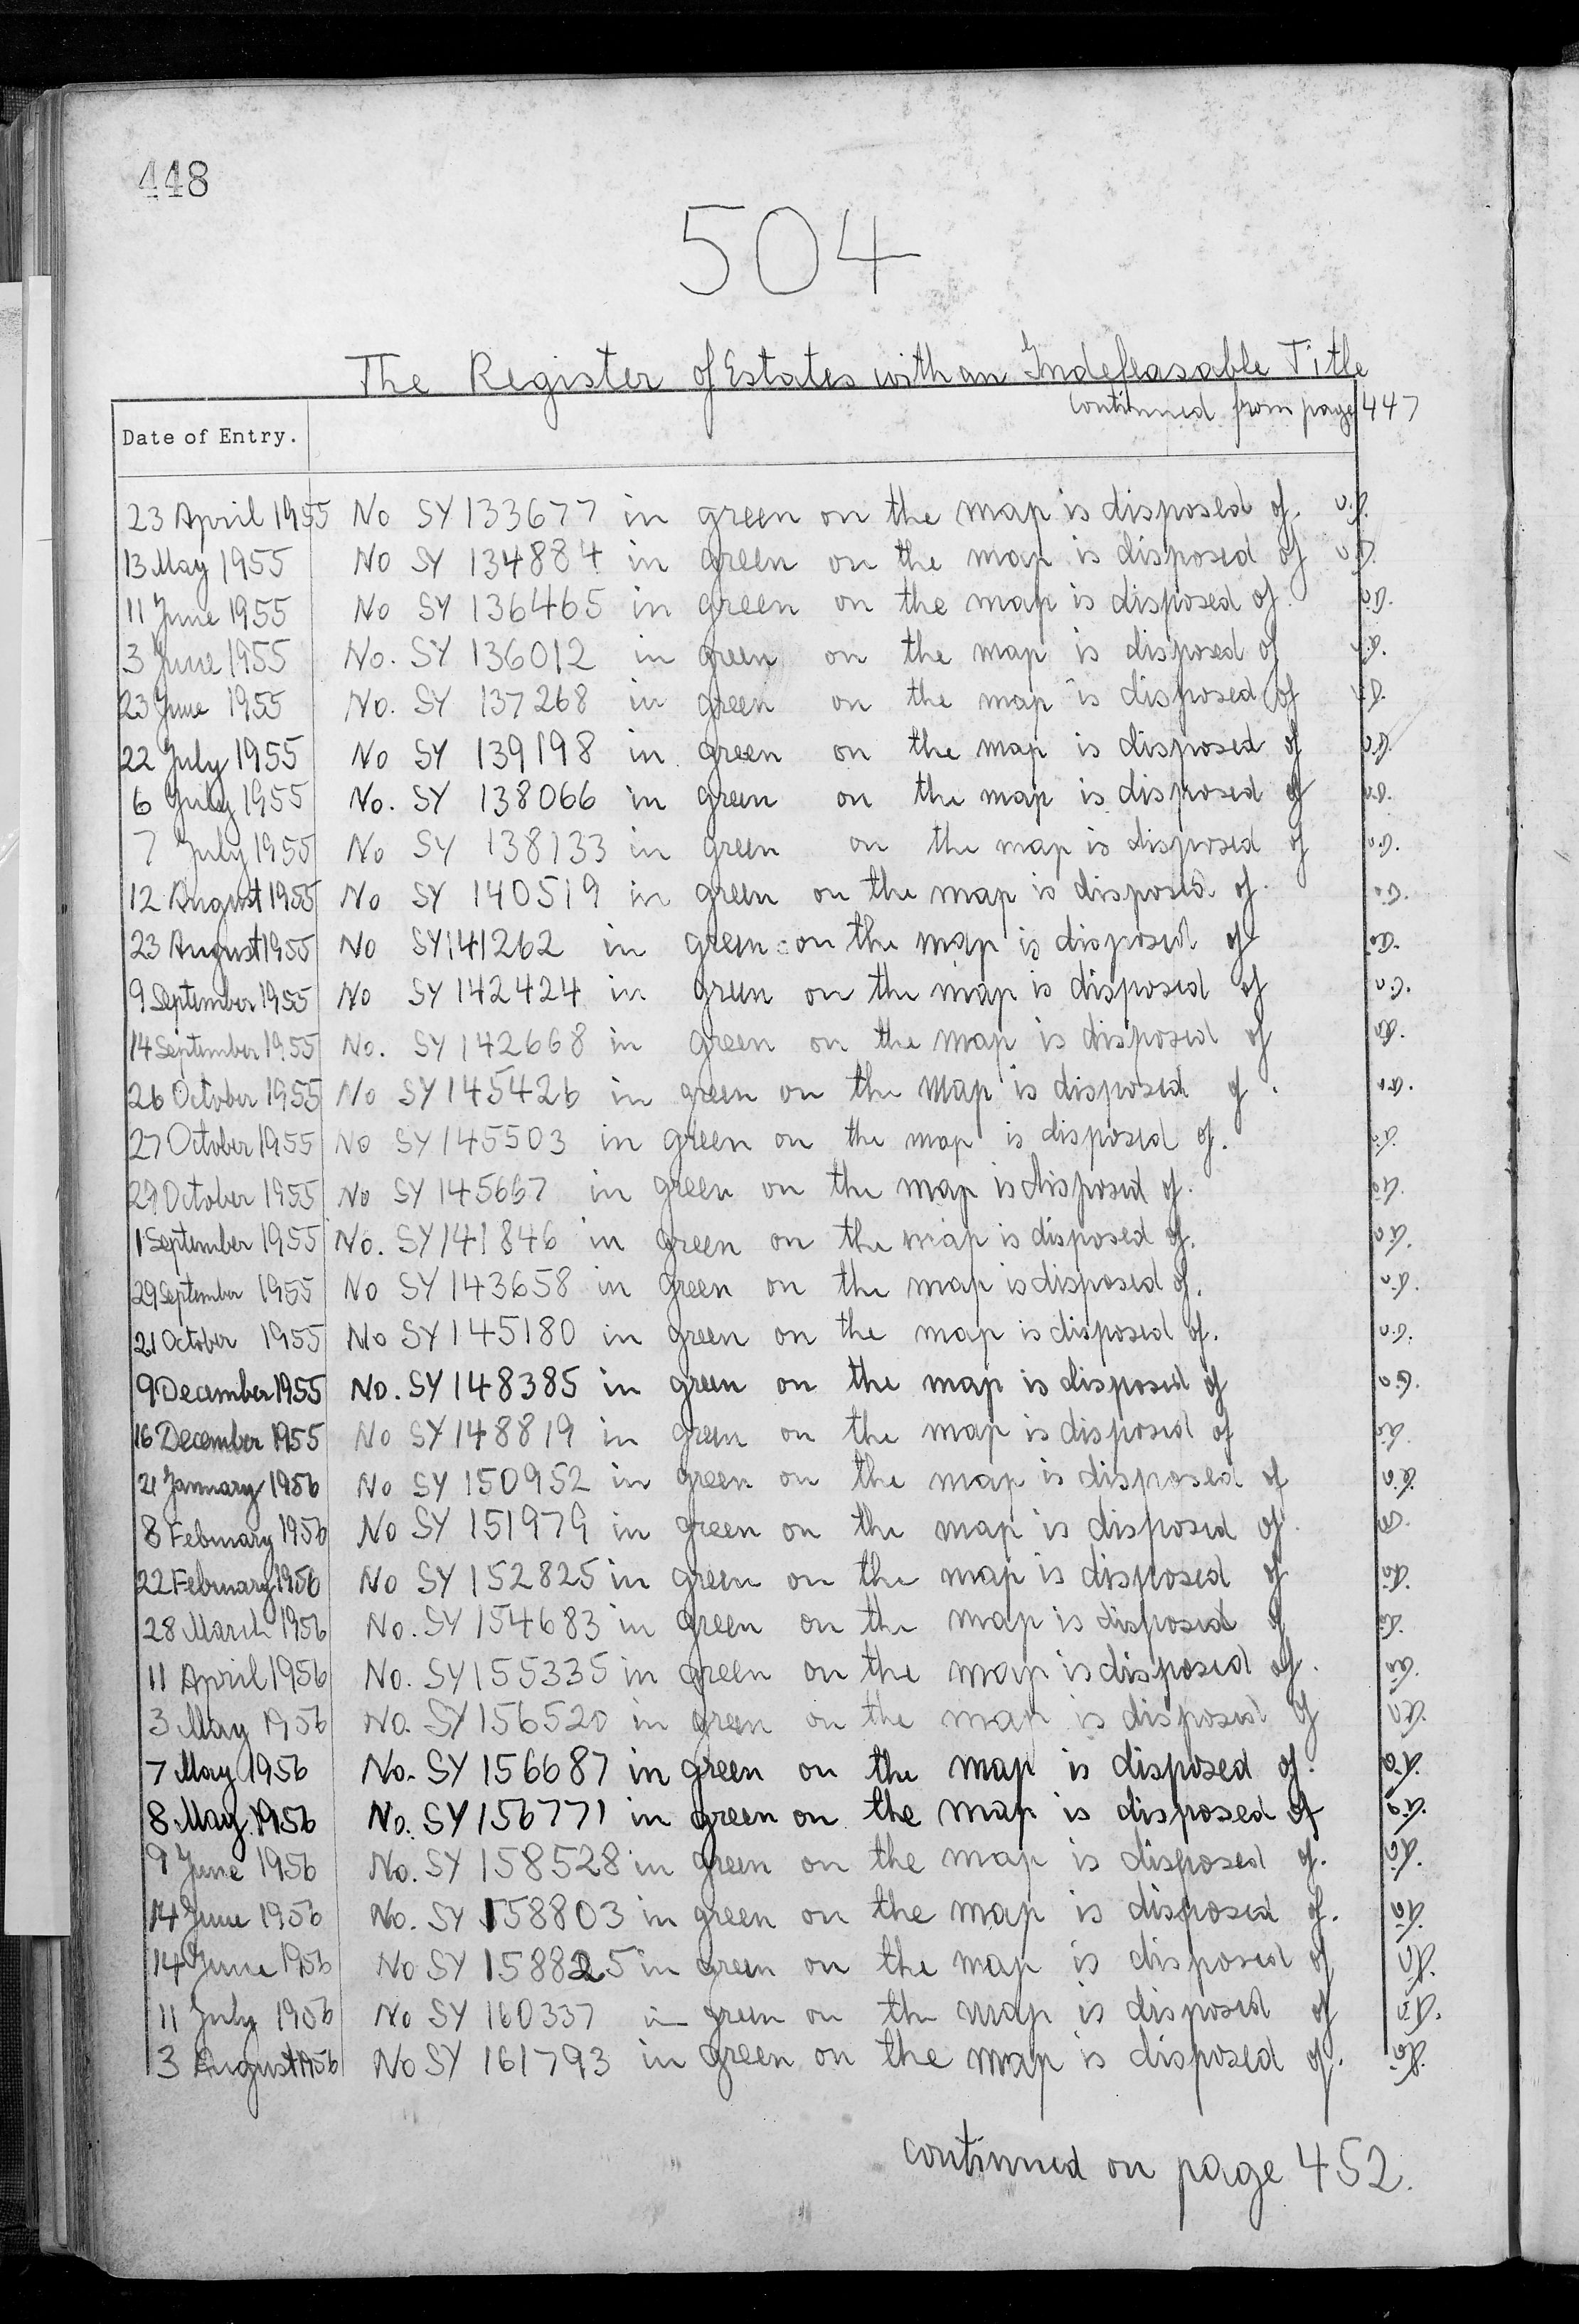 448
504
The Register of Estates with an Indefeasable Title
continued from page 447
Date of Entry.
23 April 1955 No SY 133677 in green on the map is disposed of.
13 May 1955 No SY 134884 in green on the map is disposed of
11 June 1955 No SY 136465 in green on the map is disposed of.
3 June 1955 No. SY 136012 in green on the map is disposed of
23 June 1955 No. SY 137268 in green on the map is disposed of
22 July 1955 No SY 139198 in green on the map is disposed of
6 July 1955 No. SY 138066 in green on the map is disposed of
7 July 1955 No SY 138133 in green on the map is disposed of
12 August 1955 No SY 140519 in green on the map is disposed of.
23 August 1955 No SY 141262 in green on the map is disposed of
9 September 1955 No SY 142424 in green on the map is disposed of
14 September 1955 No. SY 142668 in green on the map is disposed of
26 October 1955 No SY 145426 in green on the map is disposed of.
27 October 1955 No SY 145503 in green on the map is disposed of.
October 1955 No SY 145667 in green on the map is disposed of.
1 September 1955 No. SY 141846 in green on the map is disposed of.
29 September 1955 No SY 143658 in green on the map is disposed of.
21 October 1955 No SY 145180 in green on the map is disposed of.
9 December 1955 No. SY 148385 in green on the map is disposed of
16 December 1955 No SY 148819 in green on the map is disposed of
21 January 1956 No SY 150952 in green on the map is disposed of
8 February 1956 No SY 151979 in green on the map is disposed of.
22 February 1956 No SY 152825 in green on the map is disposed of
28 March 1956 No. SY 154683 in green on the map is disposed of
11 April 1956 No. SY 155335 in green on the map is disposed of.
3 May 1956 No. SY 156520 in green on the map is disposed of
7 May 1956 No. SY 156687 in green on the map is disposed of.
8 May 1956 No. SY 156771 in green on the map is disposed of
9 June 1956 No. SY 158528 in green on the map is disposed of.
14 June 1956 No. SY 158803 in green on the map is disposed of.
14 June 1956 No SY 158825 in green on the map is disposed of
11 July 1956 No SY 160337 in green on the map is disposed of
3 August 1956 No SY 161793 in green on the map is disposed of.
continued on page 452.